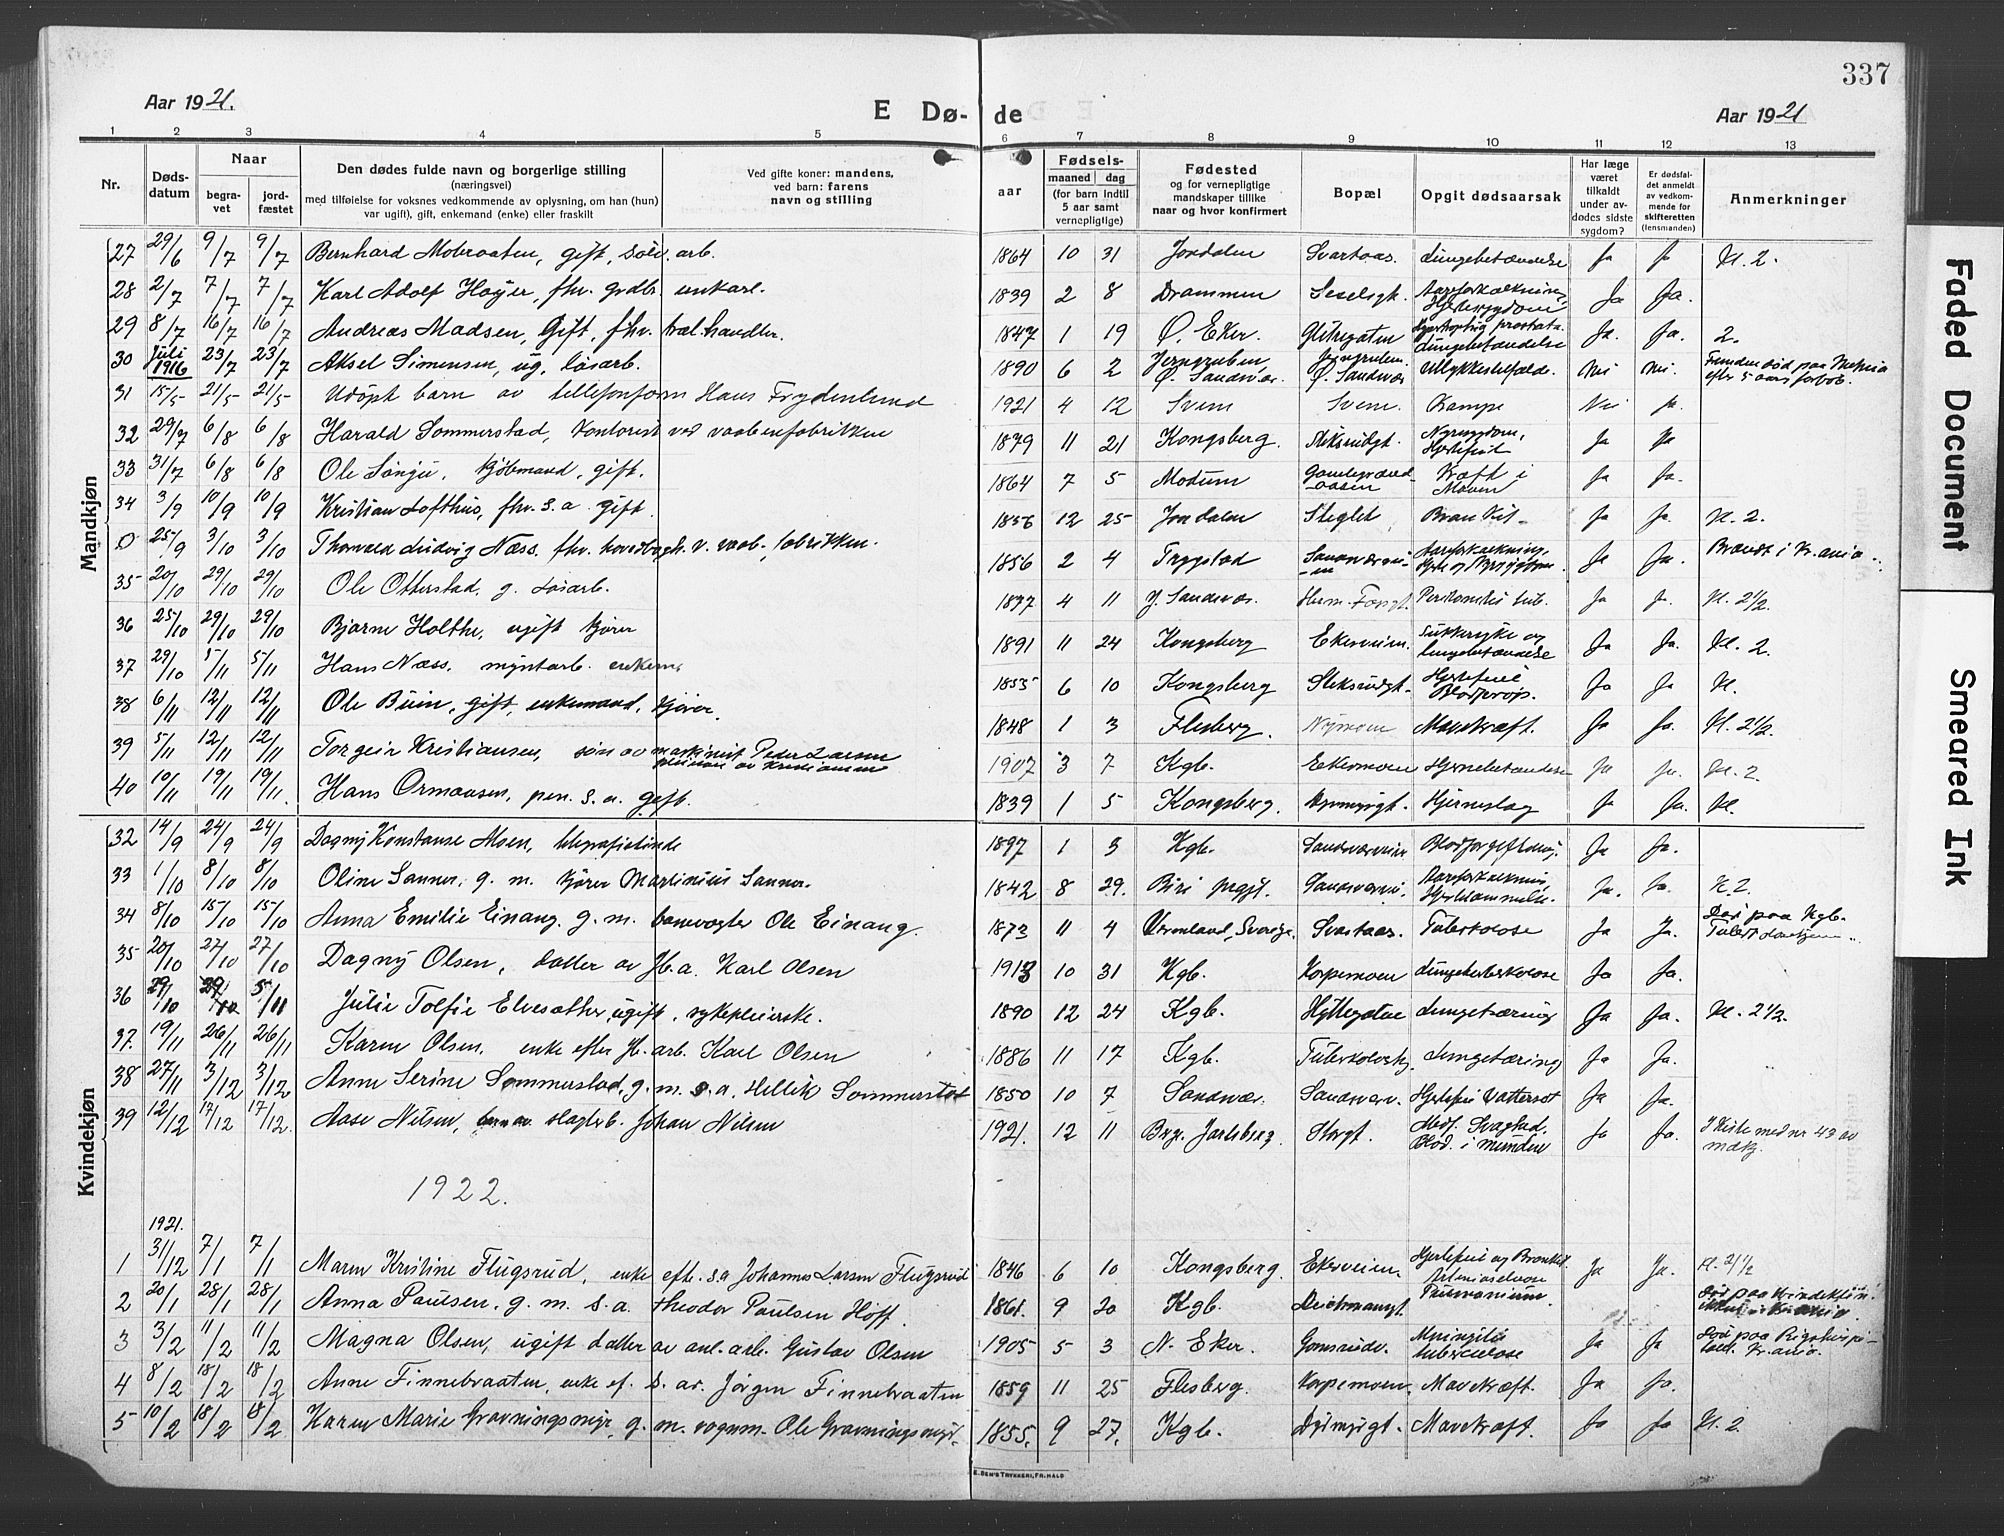 337
Aar 1921.
E Dø- de
Aar 1921
1 2 3 4 5 6 7 8 9 10 11 12 13
Nr.
Døds-
datum
Naar
begra-
vet
jord-
fæstet
Den dødes fulde navn og borgerlige stilling
(næringsvei)
med tilføielse for voksnes vedkommende av oplysning, om han (hun)
var ugift), gift, enkemand (enke) eller fraskilt
Ved gifte koner: mandens,
ved barn: farens
navn og stilling
aar
Fødsels-
maaned dag
(for barn indtil
5 aar samt
vernepligtige)
Fødested
og for vernepligtige
mandskaper tillike
naar og hvor konfirmert
Bopæl
Opgit dødsaarsak
Har læge
været
tilkaldt
under av-
dødes sidste
sygdom?
Er dødsfal-
det anmeldt
av vedkom-
mende for
skifteretten
(lensmanden)
Anmerkninger
Mandkjøn
27 29/6 9/7 9/7 Bernhard Mobraaten, gift, sölv.arb. 1864 10 31 Jondalen Svartaas. Lungebetændelse Ja Ja Kl. 2.
28 2/7 7/7 7/7 Karl Adolf Høyer, fhv. grdbr. enkarl. 1839 2 8 Drammen Aareforkalkning, Hjertesygdom Ja Ja.
29 8/7 16/7 16/7 Andreas Madsen, Gift, fhv. træl.handler. 1847 1 19 Ø. Eker. Glitregaten prostata. Lungebetændelse Ja. Ja. 2.
30 Juli 1916 23/7 23/7 Aksel Simensen, ug. løsarb. 1890 6 2 Jerngruben, Ø. Sandsvær. Ø. Sandsvær Ulykkestilfælde. Nei Nei. Funden død paa
efter 5 aars forløb.
31 15/5 21/5 21/5 Udöpt barn av tellefonform Hans Frydenlund 1921 4 12 Svene Svene. Krampe Nei Ja.
32 29/7 6/8 6/8 Harald Sommerstad, kontorist ved vaabenfabrikken 1879 11 21 Kongsberg. Nyresygdom, Hjertefeil Ja Ja
33 31/7 6/8 6/8 Ole kjøbmand, gift. 1864 7 5 Modum Kræft i Maven Ja Ja.
34 3/9 10/9 10/9 Kristian Lofthus, fhv. s.a. gift. 1856 12 25 Jondalen Steglet, Ja Ja. Kl. 2.
0 25/9 3/10 3/10 Thorvald Ludvig Næss. fhv. hovedbogh. v. vaab.fabrikken. 1856 2 4 Trygstad Aareforkalkning, Hjerte og Nyresygdom Ja Ja. Brændt i Kr.ania.
35 20/10 29/10 29/10 Ole Otterstad, g. løsarb. 1877 4 11 Y. Sandsvær. Herm. Fossgt. Peritonitis tub. Ja Ja. Kl. 2½.
36 25/10 29/10 29/10 Bjarne Holthe, ugift kjører 1891 11 24 Kongsberg Ekerveien. Sukkersyke og lungebetændelse Ja Ja. Kl. 2.
37 29/10 5/11 5/11 Hans Næss. myntarb. enkem. 1853 6 10 Kongsberg Hjertefeil Blodprop. Ja Ja Kl.
38 6/11 12/11 12/11 Ole Buin, gift, enkemand, kjører. 1848 1 3 Flesberg. Nymoen Mavekræft. Ja Ja. Kl. 2½.
39 5/11 12/11 12/11 Torgeir Kristiansen, søn av maskinist Peder Larsen
1907 3 7 Kgb. Ekermoen Hjernebetændelse Ja Ja. Kl. 2
40 10/11 19/11 19/11. Hans Ormaasen, pen. s.a. gift. 1839 1 5 Kongsberg. Hjerneslag Ja Ja. Kl.
Kvindekjøn
32 14/9 24/9 24/9 Dagny Konstanse Moen, telegrafistinde 1897 1 3 Kgb. Sandsværveien Blodforgiftning. Ja Ja.
33 1/10 8/10 8/10 Oline Sanner, g. m. kjører Martinius Sanner. 1842 8 29. Biri prgjt. Sandsværv. Aareforkalkning, Hjertelammelse. Ja. Ja. Kl. 2.
34 8/10 15/10 15/10 Anna Emilie Einang. g. m. banevogter Ole Einang. 1873 11 4 Vermland, Sverige. Svartaas. Tuberkulose Ja Ja. Død paa Kgb.
35 20/10 27/10 27/10 Dagny Olsen, datter av Jb.a. Karl Olsen 1913 10 31 Kgb. Korpemoen Lungetuberkulose Ja Ja.
36 29/10 5/11 Julie Tolfie Elvesæther, ugift, sykepleierske. 1890 12 24 Kgb. Hyttegaten Lungetæring Ja Ja. Kl. 2½.
37. 19/11 26/11 26/11 Karen Olsen, enke efter Jb.arb. Karl Olsen 1886 11 17 Kgb. Lungetæring Ja Ja.
38 27/11 3/12 3/12 Anne Serine Sommerstad, g. m. s.a. Hellik Sommerstad 1850 10 7 Sandsvær. Sandsværv. Hjertefeil Vattersot Ja Ja.
39 12/12 17/12 17/12. Aase Nilsen, barn av slagterb. Johan Nilsen 1921. 12 11 Jarlsberg. Storgt. Medf. Svaghed. Blod. i munden Ja Ja. I kiste med nr 43 av
mdkj.
1922.
1921.
1 31/12 7/1 7/1 Maren Kristine Flugsrud, enke eft. s.a Johannes Larsen Flugsrud 1846 6 10 Kongsberg. Ekerveien. Hjertefeil og Bronkit. Ja Ja. Kl. 2½
2 20/1 28/1 28/1 Anna Paulsen, g. m. s.a. Theodor Paulsen Hoff. 1861. 9 20 Kgb. Dyrmyrgt. Død paa Kvindeklinikken
3 3/2 11/2 11/2 Magna Olsen, ugift datter av anl.arb. Gustav Olsen 1905 5 3 N. Eker. Gomsrudv. Meningitis tuberculose Ja Ja Død paa Rigshospi-
talet. Kr.ania.
4 8/2 18/2 18/2 Anne Finnebraaten, enke ef. s. ar. Jørgen Finnebraaten 1859 11 25 Flesberg. Korpemoen. Mavekræft. Ja Ja.
5 10/2 18/2 18/2 Karen Marie Gravningsmyr, g. m. vognm. Ole Gravningsmyr. 1855. 9 27. Kgb. Dyrmyrgt. Mavekræft. Ja Ja Kl. 2.
E. SEM'S TRYKKERI, FR.HALD
Faded Document
Smeared Ink